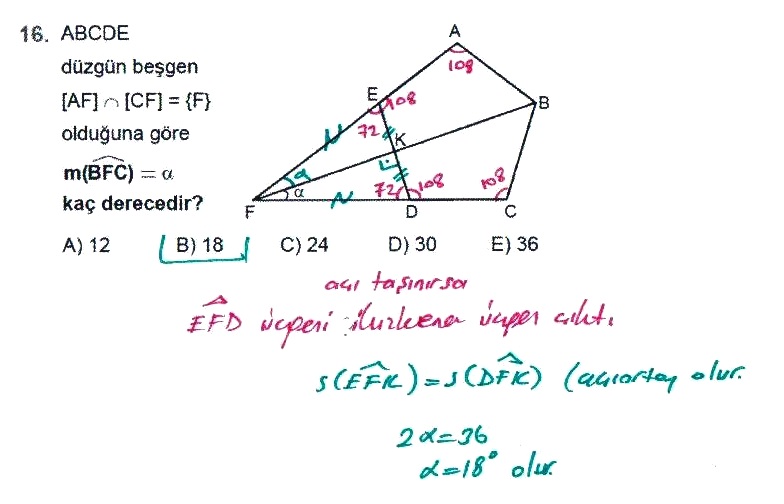 16. ABCDE
düzgün beşgen
[AF] ∩ [CF] = {F}
olduğuna göre
m(BFC) = α
kaç derecedir?
A
108
E
108
B
72
K
α
α
72
108
108
F
D
C
A) 12 B) 18 C) 24 D) 30 E) 36
açı taşınırsa
EFD üçgeni ikizkenar üçgen çıktı.
s(EFK) = s(DFK) (açıortay olur.
2α=36
α=18° olur.